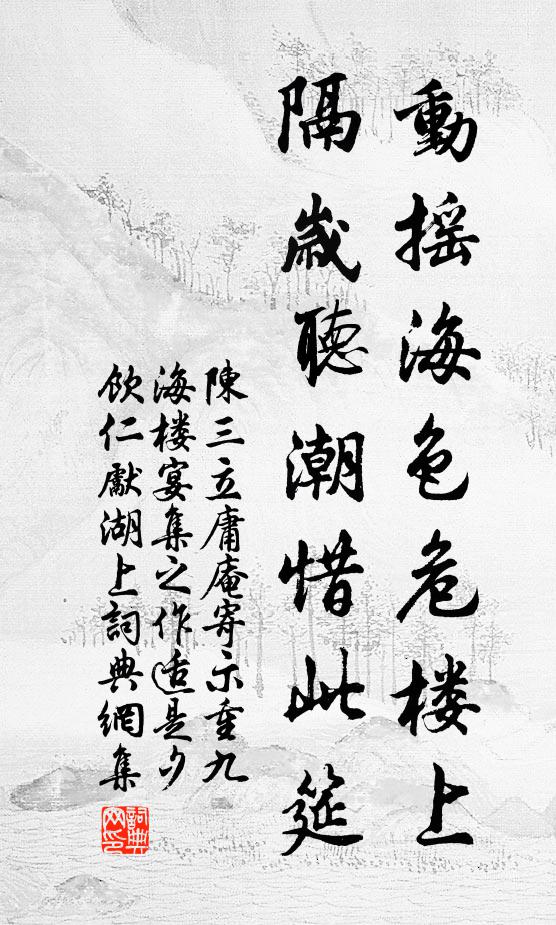 動摇海色危楼上
隔歲聽潮惜此筵
陳三立庸庵寄示重九
海楼宴集之作適是夕
飲仁獻湖上詞典網集
詞典
网印